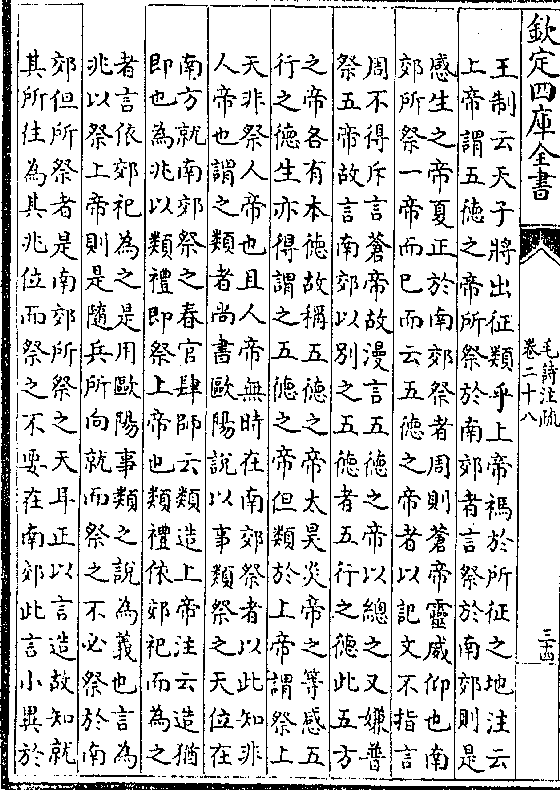 欽定四庫全書
毛詩注疏
卷二十八
三十四
王制云天子將出征類乎上帝禡於所征之地注云
上帝謂五德之帝所祭於南郊者言祭於南郊則是
感生之帝夏正於南郊祭者周則蒼帝靈威仰也南
郊所祭一帝而已而云五德之帝者以記文不指言
周不得斥言蒼帝故漫言五德之帝以總之又嫌普
祭五帝故言南郊以別之五德者五行之德此五方
之帝各有本德故稱五德之帝太昊炎帝之等感五
行之德生亦得謂之五德之帝但類於上帝謂祭上
天非祭人帝也且人帝無時在南郊祭者以此知非
人帝也謂之類者尚書歐陽說以事類祭之天位在
南方就南郊祭之春官肆師云類造上帝注云造猶
即也為兆以類禮即祭上帝也類禮依郊祀而為之
者言依郊祀為之是用歐陽事類之說為義也言為
兆以祭上帝則是隨兵所向就而祭之不必祭於南
郊但所祭者是南郊所祭之天耳正以言造故知就
其所往為其兆位而祭之不要在南郊此言小異於